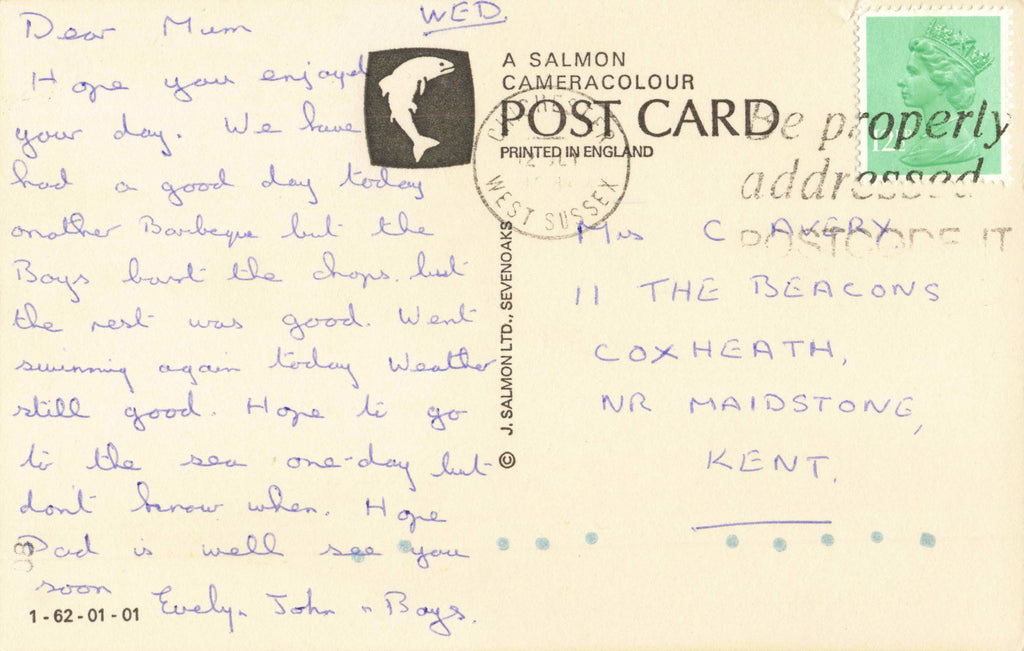 WED.
Dear Mum
Hope you enjoyed
your day. We have
had a good day today
another Barbeque but the
Boys burnt the chops. but
the rest was good. Went
swimming again today Weather
still good. Hope to go
to the sea one-day but
don't know when. Hope
Dad is well see you
soon
Evelyn John n Boys.
1-62-01-01
A SALMON
CAMERACOLOUR
POST CARD
PRINTED IN ENGLAND
© J. SALMON LTD., SEVENOAKS
CHICHESTER
WEST SUSSEX
Be properly
addressed
POSTCODE IT
12
Mrs C AVERY
11 THE BEACONS
COXHEATH,
NR MAIDSTONE,
KENT.